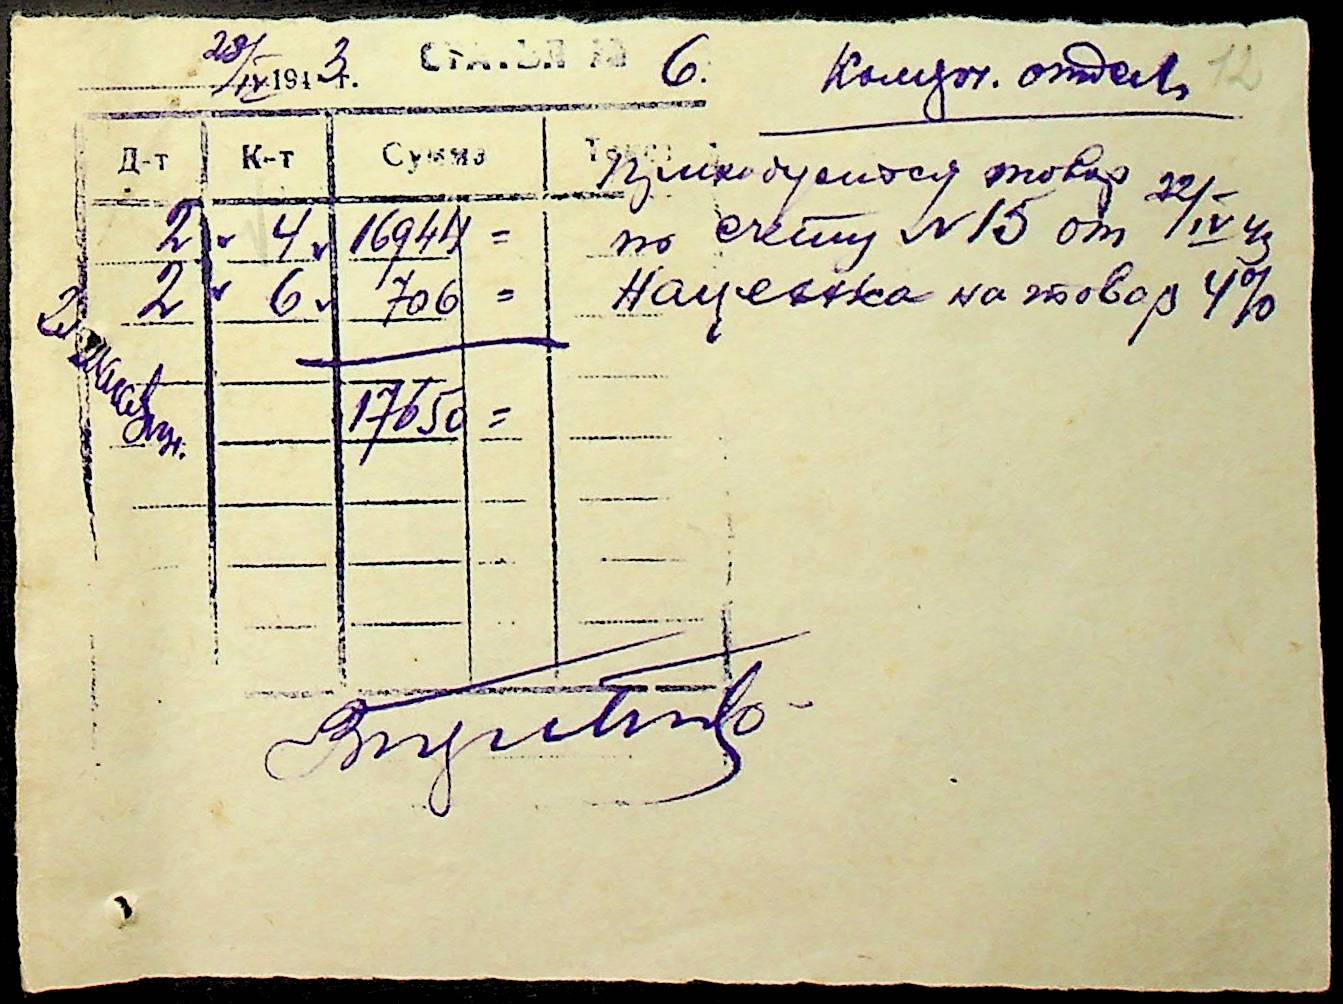 28/IV 1943 г. СТАТЬЯ № 6.
Комерч. отдел 12
Д-т К-т Сумма Текст
Приходуется товар
2 4 16944 = по счету N 15 от 22/IV 43
2 6 706 = Наценка на товар 4%
17650 =